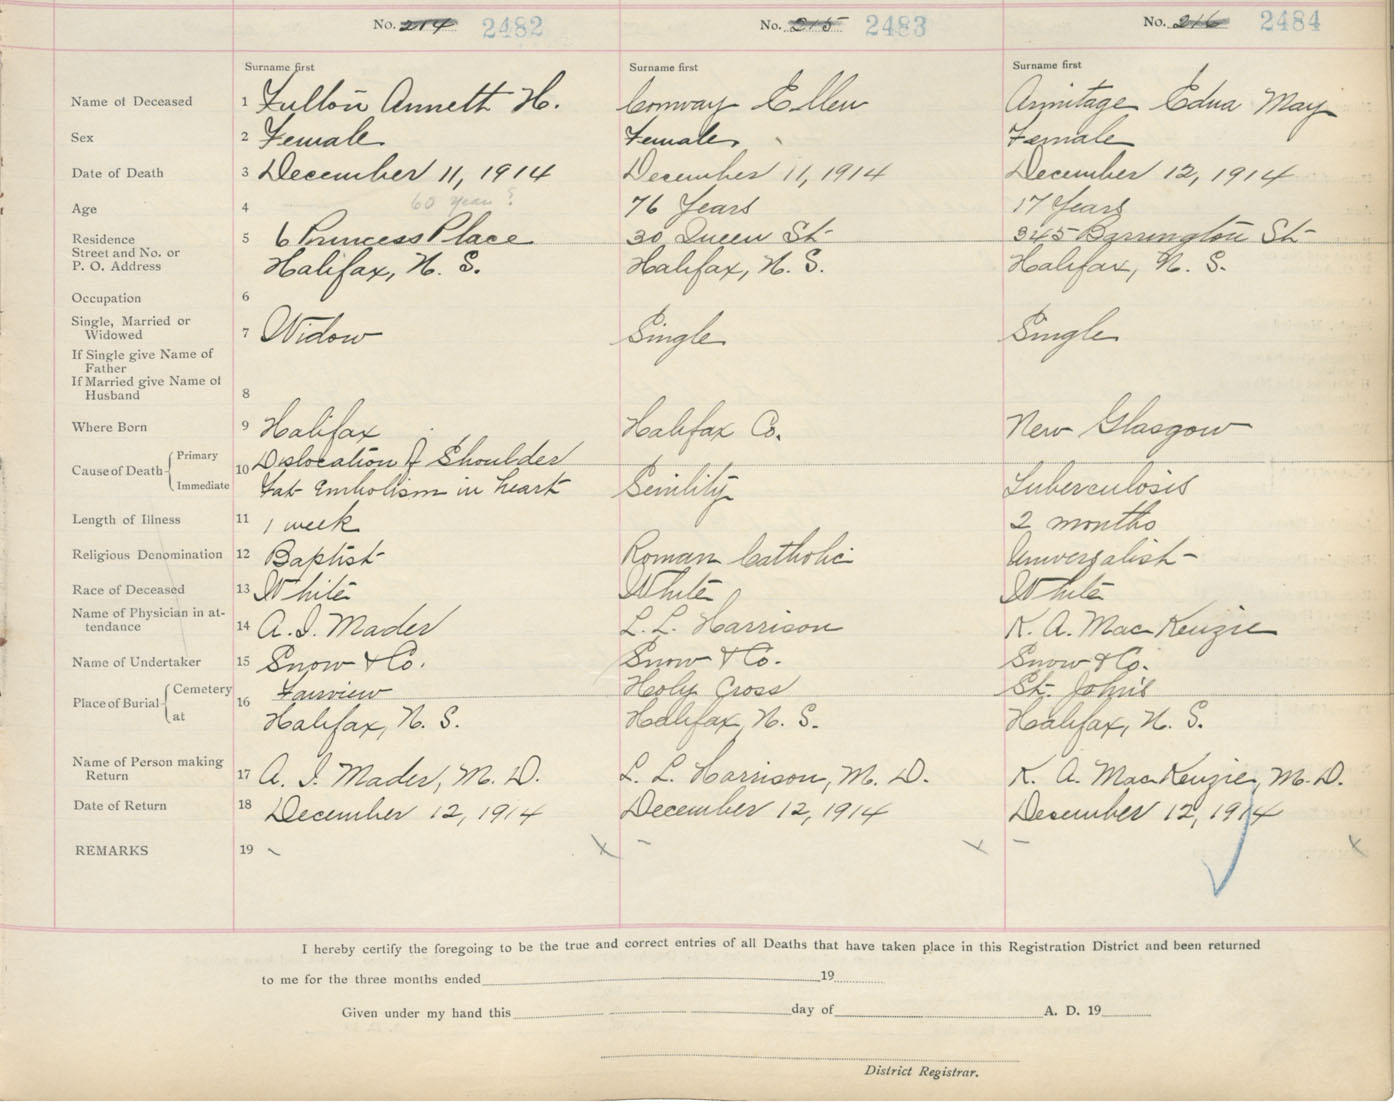 No. 214 2482 No. 215 2483 No. 216 2484
Surname first Surname first Surname first
Name of Deceased 1 Fulton Annett H. Conway Ellen Armitage Edna May
Sex 2 Female Female Female
Date of Death 3 December 11, 1914 December 11, 1914 December 12, 1914
Age 4 60 year? 76 Years 17 Years
Residence 5 6 Princess Place 30 Queen St 345 Barrington St
Street and No. or
P. O. Address Halifax, N. S. Halifax, N. S. Halifax, N. S.
Occupation 6
Single, Married or
Widowed 7 Widow Single Single
If Single give Name of
Father
If Married give Name of
Husband 8
Where Born 9 Halifax Halifax Co. New Glasgow
Cause of Death Primary 10 Dislocation of Shoulder
Immediate Fat Embolism in heart Senility Tuberculosis
Length of Illness 11 1 week 2 months
Religious Denomination 12 Baptist Roman Catholic Universalist
Race of Deceased 13 White White White
Name of Physician in at-
tendance 14 A. I. Mader L. L. Harrison K. A. MacKenzie
Name of Undertaker 15 Snow & Co. Snow & Co. Snow & Co.
Place of Burial Cemetery 16 Fairview Holy Cross St. John's
at Halifax, N. S. Halifax, N. S. Halifax, N. S.
Name of Person making
Return 17 A. I. Mader, M. D. L. L. Harrison, M. D. K. A. MacKenzie, M. D.
Date of Return 18 December 12, 1914 December 12, 1914 December 12, 1914
REMARKS 19 - x - x - x
I hereby certify the foregoing to be the true and correct entries of all Deaths that have taken place in this Registration District and been returned
to me for the three months ended 19
Given under my hand this day of A. D. 19
District Registrar.